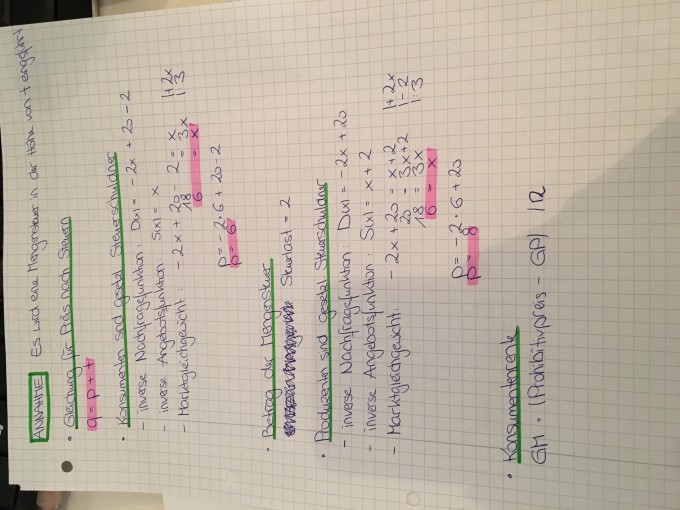 ANNAHME Es wird eine Mengensteuer in der Höhe von t eingeführt
• Gleichung für Preis nach Steuern
q = p + t
• Konsumenten sind gesetzl. Steuerschuldner
- inverse Nachfragefunktion: D(x) = -2x + 20 - 2
- inverse Angebotsfunktion: S(x) = x
- Marktgleichgewicht: -2x + 20 - 2 = x |+2x
18 = 3x |:3
6 = x
p = -2·6 + 20 - 2
p = 6
• Betrag der Mengensteuer
Steuerlast = 2
• Produzenten sind gesetzl. Steuerschuldner
- inverse Nachfragefunktion: D(x) = -2x + 20
- inverse Angebotsfunktion: S(x) = x + 2
- Marktgleichgewicht: -2x + 20 = x + 2 |+2x
20 = 3x + 2 |-2
18 = 3x |:3
6 = x
p = -2·6 + 20
p = 8
• Konsumentenrente
GM · (Prohibitivpreis - GP) | 2